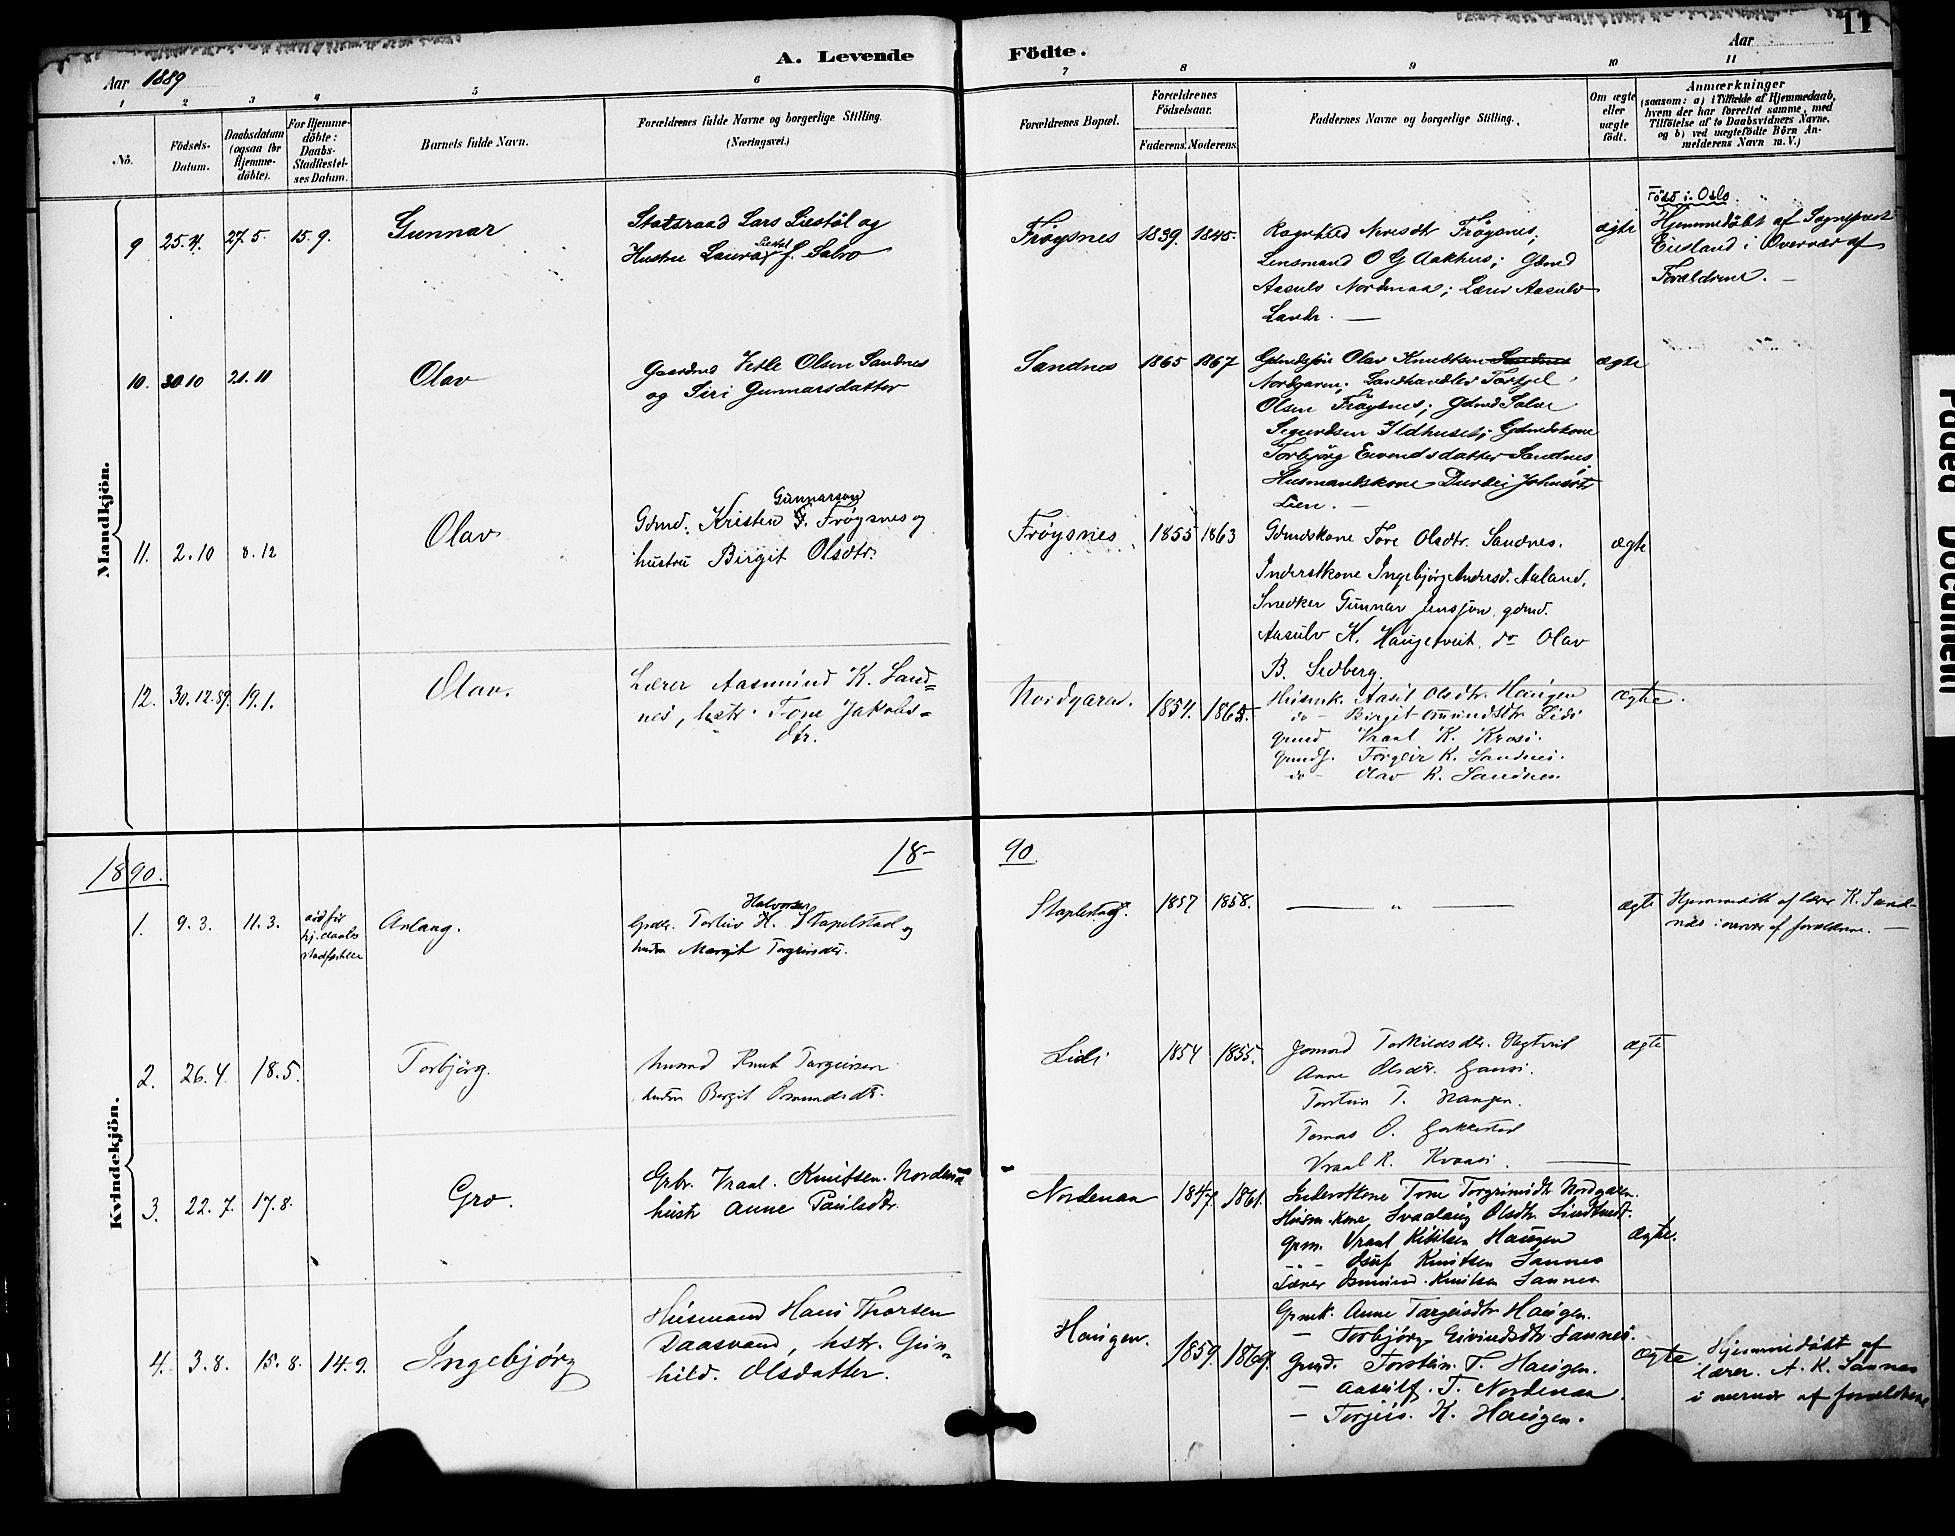 11
A. Levende Födte.
Aar 1889
Aar
1 2 3 4 5 6 7 8 9 10 11
No.
Födsels-Datum.
Daabsdatum (ogsaa for Hjemme-döbte).
For Hjemme-döbte: Daabs-Stadfæstel-ses Datum.
Barnets fulde Navn.
Forældrenes fulde Navne og borgerlige Stilling.
(Næringsvei.)
Forældrenes Bopæl.
Forældrenes Födselsaar.
Faderens. Moderens.
Faddernes Navne og borgerlige Stilling.
Om ægte eller uægte födt.
Anmærkninger
(saasom: a) i Tilfælde af Hjemmedaab, hvem der har forrettet samme, med Tilföielse af to Daabsvidners Navne, og b) ved uægtefödte Börn An-melderens Navn m. V.)
Mandkjön.
9 25.4. 27.5. 15.9. Gunnar
Statsraad Lars Liestöl og
Hustru Laura Liestöl f. Salvo
Frøysnes 1839. 1845.
Ragnhild Nerisdtr Frøysnes;
Lensmand O G Aakhus; Gdmd
Aasulv Nordnaa; Lærer Aasulv
ægte
Født i Oslo.
Hjemmedöbt af Sogneprest
i Overvær af
Forældrene. —
10. 30.10 21.11 Olav
Gaardms Vetle Olsen Sandnes
og Siri Gunnarsdatter
Sandnes 1865 1867
Olav Knudtsen Sandnes
Nordgaren; Landhandler Torkjel
Olsen Frøysnes; Gdmd Salve
Sigurdsen Ildhuset; Gdmdskone
Torbjörg Eivendsdatter Sandnes
Husmandskone Johnsdtr
Lien. —
ægte
11. 2.10 8.12 Olav
Gdmd. Kristen G. Gunnarson Frøysnes og
hustru Birgit Olsdtr.
Frøysnes 1855 1863
Gdmdskone Tore Olsdtr. Sandnes.
Inderstkone Ingebjörg Andersd. Aaland,
Snedker Gunnar Jensson, gdmd.
Aasulv K. Haugetveit. do Olav
B. Sedberg.
ægte
12. 30.12.89. 19.1. Olav.
Lærer Aasmund K. Sand=
nes, hstr. Tone Jakobs=
dtr.
Nordgaren. 1854. 1865.
Husmk. Aasil Olsdtr. Haugen
do - Birgit Omundsdtr Lidi
Grmd Vraal K. Kvasi.
Torgeir K. Sandnes.
do - Olav K. Sandnes
ægte.
1890. 18-90.
Kvindekjön.
1. 9.3. 11.3. Anlaug.
Torleiv H. Halvorsen Stapelstad og
hustru Margit Torgrimsdtr.
Staplestad. 1857 1858.
— " —
ægte
Hjemmedöbt af lærer K. Sand-
nes i overvær af forældrene. —
2. 26.4. 18.5. Torbjörg.
Knut Targeirsen
hustru Birgit Omundsdtr.
Lidi 1854 1855.
Anne Olsdtr.
Torstein T. Haugen.
Tomas O.
Vraal K. Kvaasi. —
ægte
3. 22.7. 17.8. Gro.
Grbr. Vraal Knutsen Nordenaa
hustr Anne Paulsdtr.
Nordenaa 1847. 1861.
Inderstkone Tone Torgrimsdtr Nordgaren.
Husm.kone Svaalaug Olsdtr
Grm. Vraal Ketilsen Haugen
- - Knutsen Sannes
Lærer Osmund Knutsen Sannes
ægte.
4. 3.8. 15.8. 14.9. Ingebjörg
Husmand Hans Thorsen
Daasvand, hstr. Gun=
hild Olsdatter.
Haugen. 1859. 1869.
Grmk. Anne Targeisdtr Haugen.
— Torbjörg Eivindsdtr Sannes.
Grmd. Torstein T. Haugen.
— Aasulf T. Nordenaa.
— Torjeis K. Haugen.
ægte
Hjemmedöbt af
lærer A. K. Sannes
i overvær af forældrene